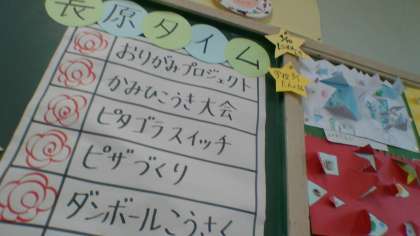 長原タイム
おりがみプロジェクト
かみひこうき大会
ピタゴラスイッチ
ピザづくり
ダンボールこうさく